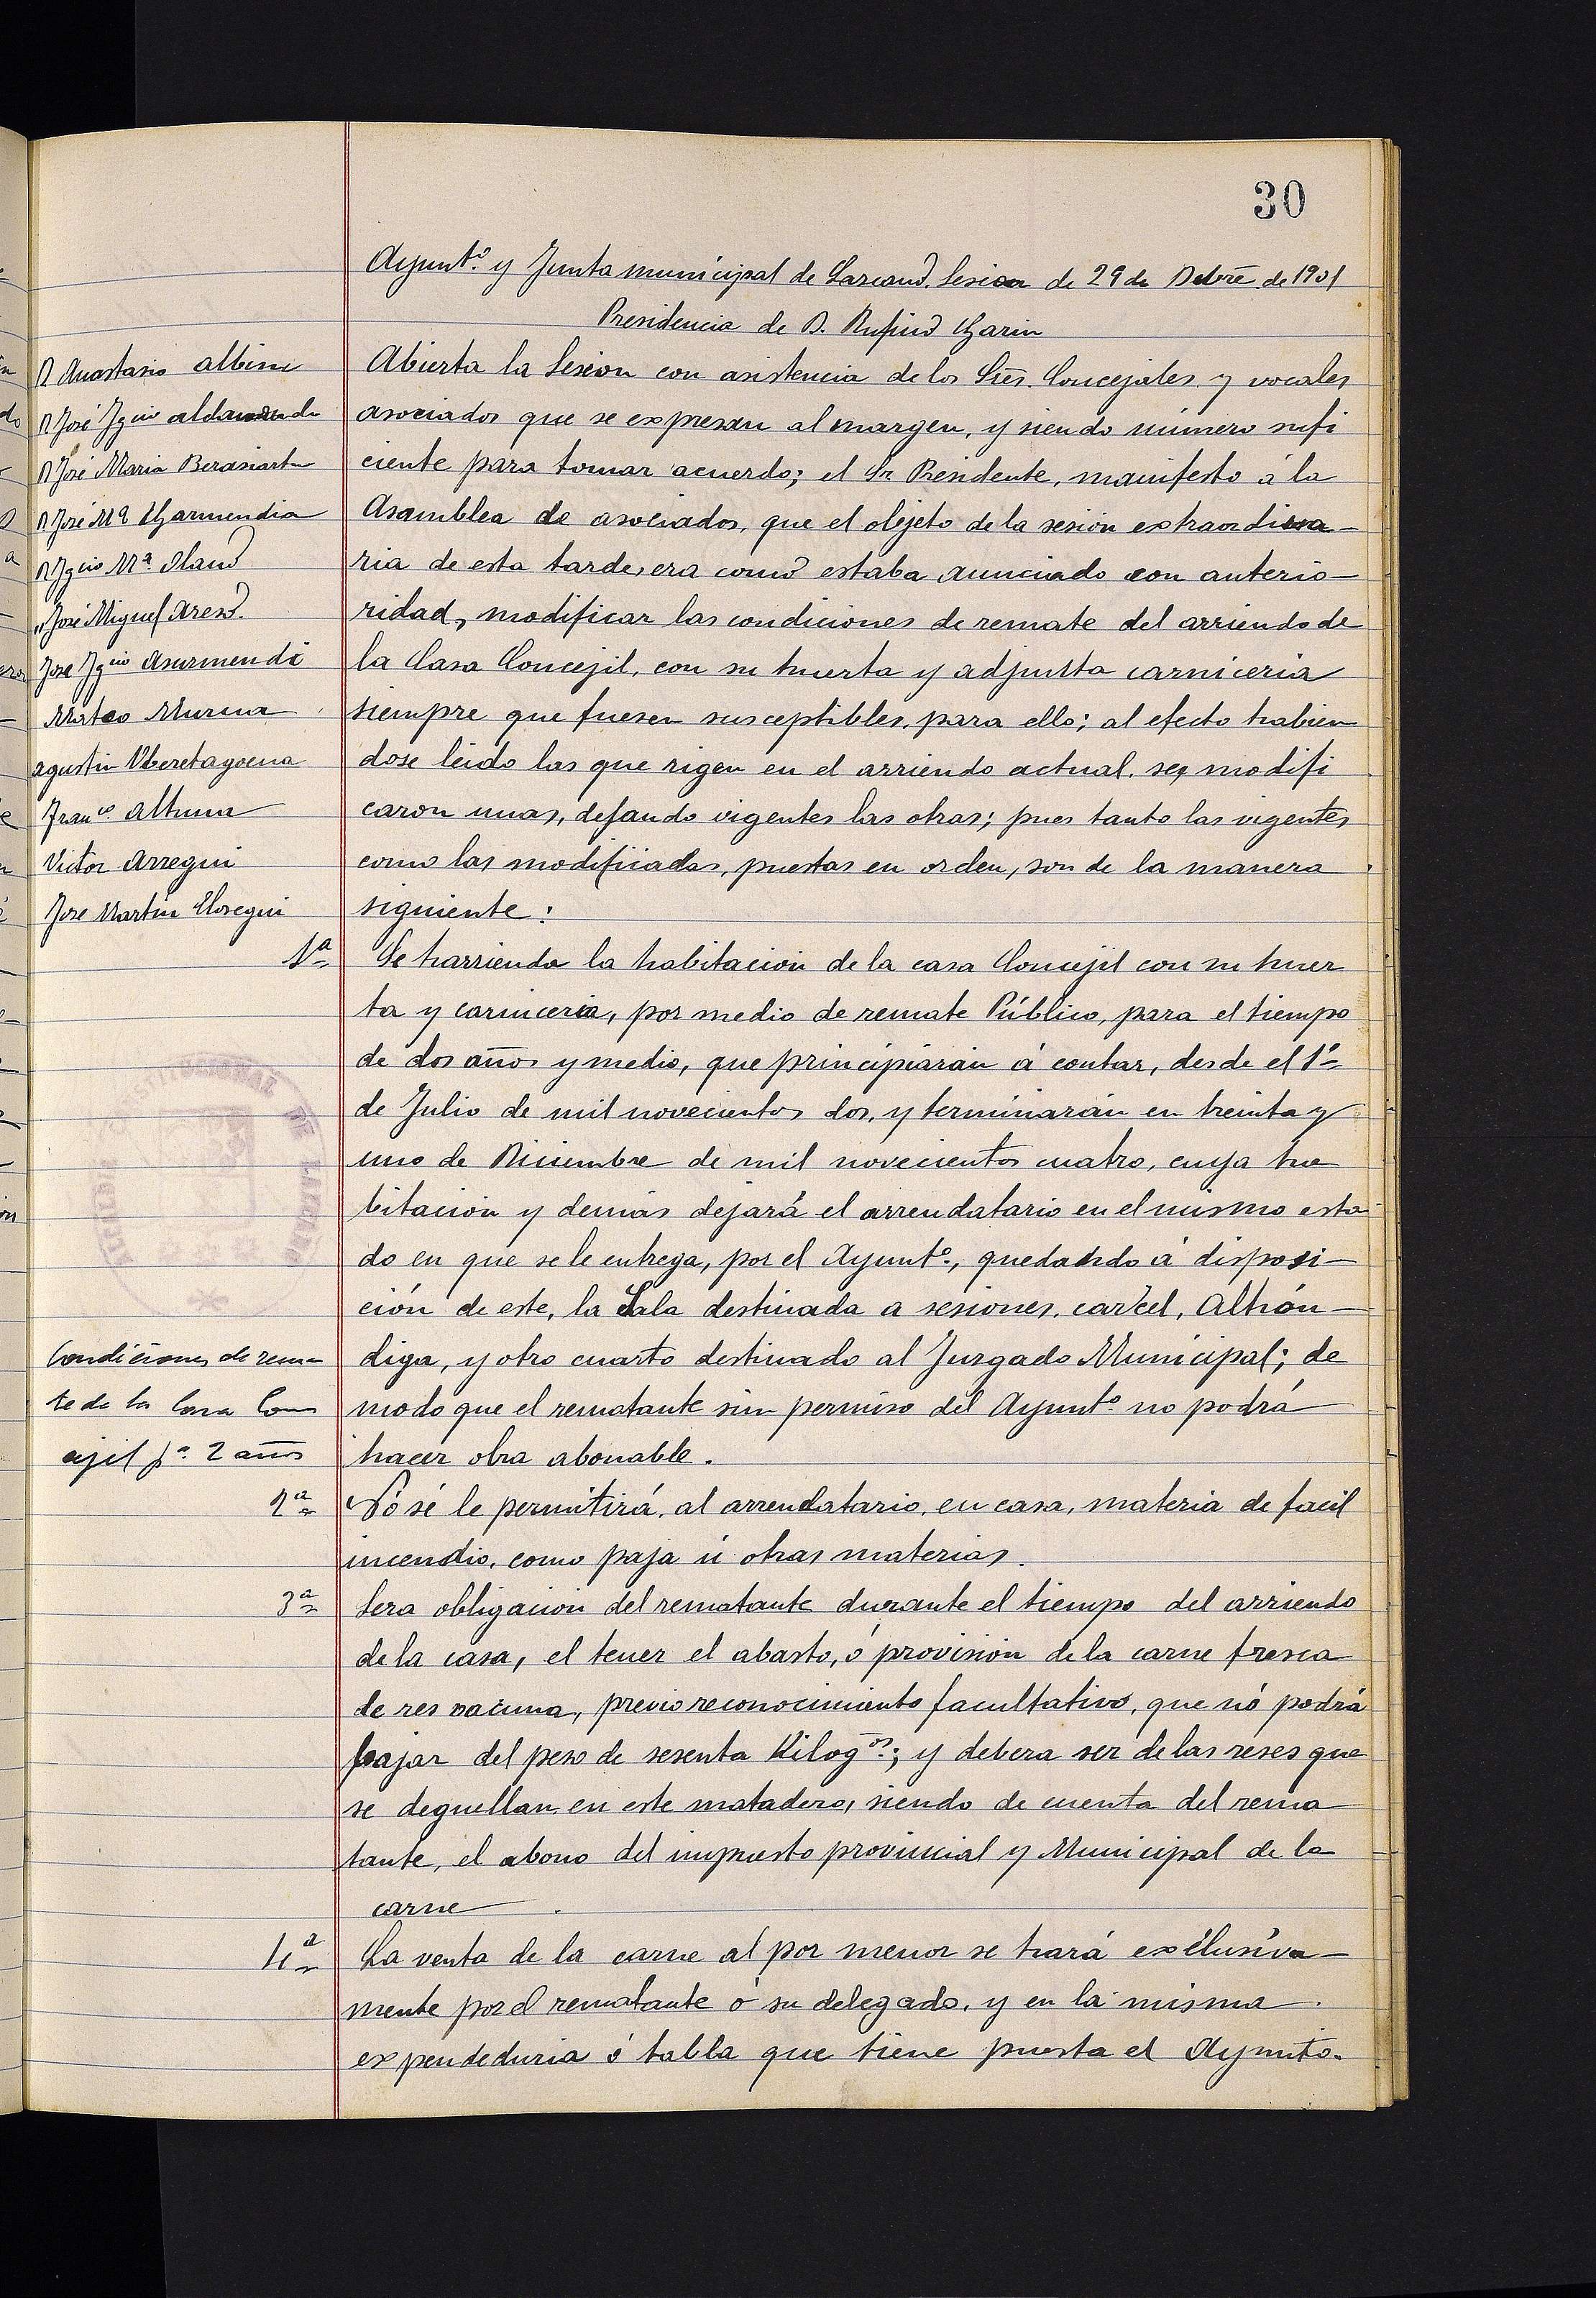 30
Ayunt.º y Junta municipal de Lazcano. Sesion de 29 de Dbre de 1901
Presidencia de D. Rufino Garin
D Anastasio Albisu
D José Ygnio Aldasoro
D José Maria Berasiartu
D José Mª Garmendia
D Ygnio Mª Olano
" José Miguel Areso.
Jose Ygnio Asurmendi
Mateo Murua
Agustin Uberetagoena
Franco Altuna
Victor Arregui
Jose Martin Elosegui
Abierta la Sesion con asistencia de los Sres. Concejales y vocales
asociados que se expresan al margen, y siendo número sufi
ciente para tomar acuerdo; el Sr. Presidente, manifesto á la
Asamblea de asociados, que el objeto de la sesión extraordina-
ria de esta tarde, era como estaba anunciado con anterio-
ridad, modificar las condiciones de remate del arriendo de
la Casa Concejil, con su huerta y adjunta carniceria
siempre que fuesen susceptibles, para ello; al efecto habien
dose leido las que rigen en el arriendo actual, se modifi
caron unas, dejando vigentes las otras; pues tanto las vigentes
como las modificadas, puestas en orden, son de la manera
siguiente:
1ª Se harrienda la habitación de la casa Concejil con su huer
ta y carniceria, por medio de remate Público, para el tiempo
de dos años y medio, que principiarán á contar, desde el 1º
de Julio de mil novecientos dos, y terminarán en treinta y
uno de Diciembre de mil novecientos cuatro, cuya ha
bitación y demás dejará el arrendatario en el mismo esta
do en que se le entrega, por el Ayuntº, quedando á disposi-
ción de este, la Sala destinada a sesiones, carcel, Alhón-
diga, y otro cuarto destinado al Juzgado Municipal; de
modo que el rematante sin permiso del Ayuntº no podrá
hacer obra abonable.
Condiciones de rema
te de la Casa Con
cejil pª 2 años
2ª No se le permitirá, al arrendatario, en casa, materia de facil
incendio, como paja ú otras materias.
3ª Sera obligacion del rematante durante el tiempo del arriendo
de la casa, el tener el abasto, ó provisión de la carne fresca
de res vacuna, previo reconocimiento facultativo, que nó podrá
bajar del peso de sesenta Kilogos; y debera ser de las reses que
se deguellan en este matadero, siendo de cuenta del rema
tante, el abono del impuesto provincial y Municipal de la
carne
4ª La venta de la carne al por menor se hará exclusiva-
mente por el rematante ó su delegado, y en la misma
expendeduria ó tabla que tiene puesta el Ayunto.